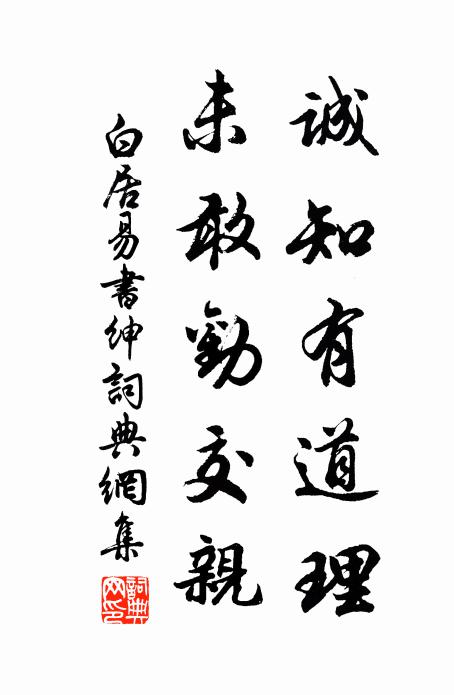 誠知有道理
未敢勸交親
白居易書紳詞典網集
詞典網印